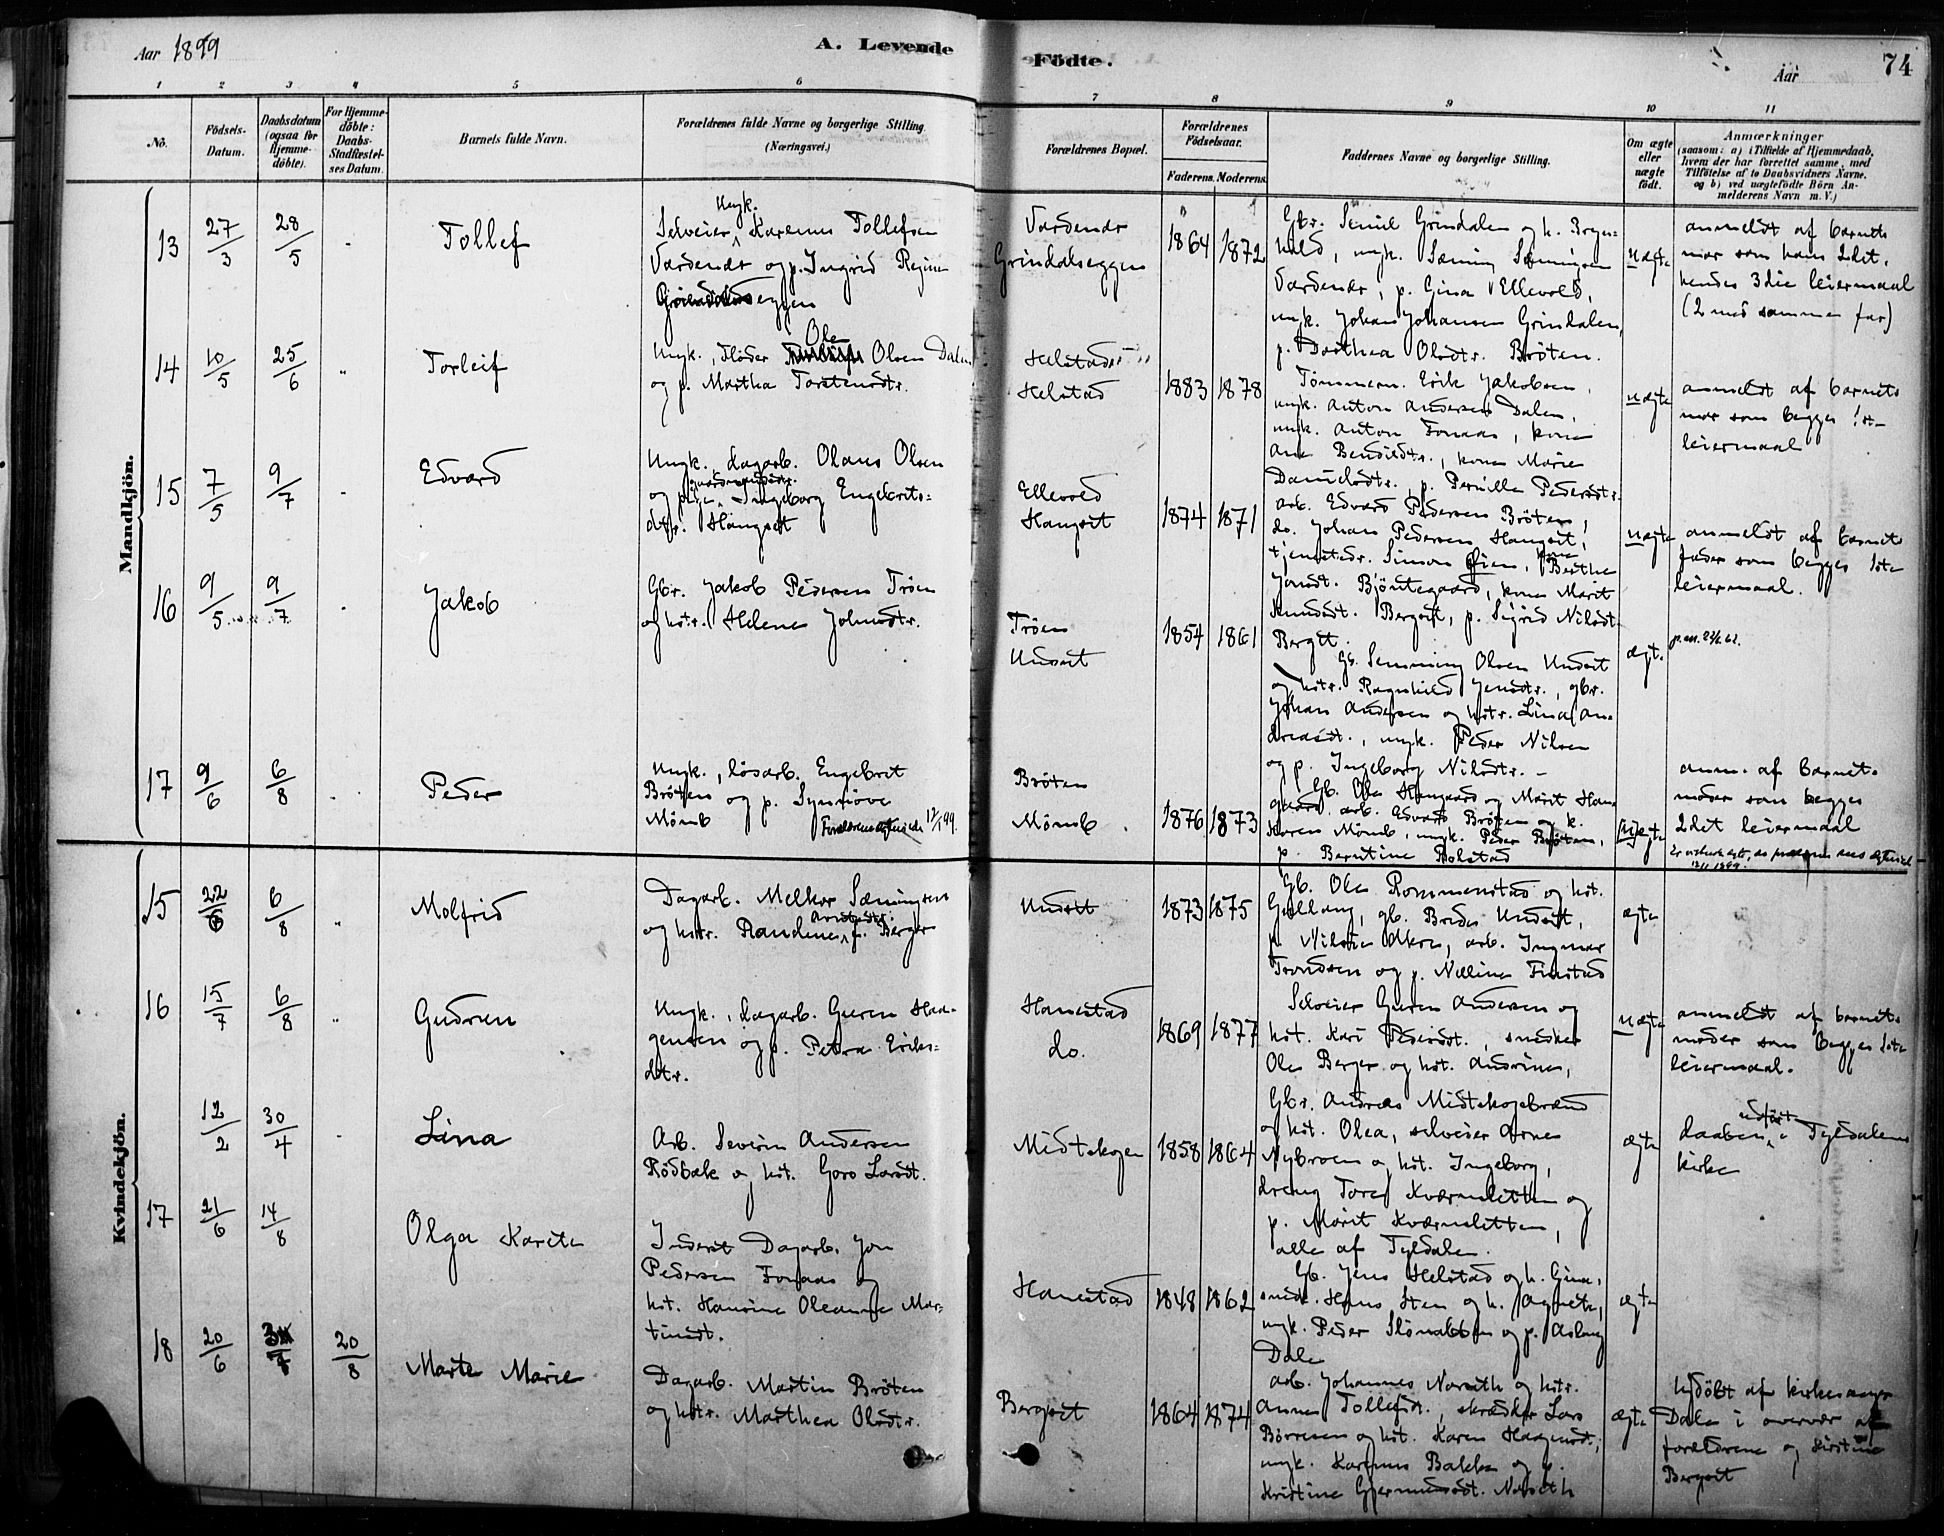 Aar 1899
A. Levende
Födte.
Aar
74
1 2 3 4 5 6 7 8 9 10 11
No.
Födsels-
Datum.
Daabsdatum
(ogsaa for
Hjemme-
döbte).
For Hjemme-
döbte:
Daabs-
Stadfæstel-
ses Datum.
Barnets fulde Navn.
Forældrenes fulde Navne og borgerlige Stilling.
(Næringsvei.)
Forældrenes Bopæl.
Forældrenes
Födselsaar.
Faderens. Moderens.
Faddernes Navne og borgerlige Stilling.
Om ægte
eller
uægte
födt.
Anmærkninger
(saasom: a) i Tilfælde af Hjemmedaab,
hvem der har forrettet samme, med
Tilföielse af to Daabsvidners Navne.
og b) ved uægtefödte Börn An-
melderens Navn m. V.)
Mandkjön.
13 27/3 28/5 Tollef
Ungk.
Selveier Karenus Tollefsen
Vardenær og p. Ingrid Regine
eggen
Vardenær
Grindalseggen
1864 1872
Gbr. Simil Grindalen og k. Bryn-
hild, ungk. Sæming Sæmingsen
Vardenær, p. Gina Ellevold,
ungk. Johan Johansen Grindalen,
p. Dorthea Olsdtr. Bröten.
uægte
anmeldt af barnets
mor som hans 2det,
hendes 3die leiermaal
(2 med samme far)
14 10/5 25/6 Torleif
Ole
Ungk., Flöder Olsen Dalen
og p. Martha Torstensdtr.
Helstad
1883 1878
Tömmerm. Erik Jakobsen,
ungk. Anton Andersen Dalen,
ungk. Anton Fonaas, kone
Ane Bendiksdtr., kone Marie
Danielsdtr., p. Pernille Pedersdtr.
uægte
anmeldt af barnets
mor som begges 1ste
leiermaal
15 7/5 9/7 Edvard
Ungk., dagarb. Olaus Olsen
og pigen Ingeborg Engebrets-
dtr. Haugset
Ellevold
Haugset
1874 1871
arb. Edvard Pedersen Bröten,
do. Johan Pedersen Haugset,
tjenestedr. Simon Öien, kone Berthe
Jonsdt. Björntegaard, kone Marit
Knudsdt. Bergset, p. Sigrid Nilsdt.
Bergset.
uægte
anmeldt af barnets
fader som begges 1ste
leiermaal.
16 9/5 9/7 Jakob
Gbr. Jakob Pedersen Tröen
og hstr. Helene Johnsdtr.
Tröen
Undset
1854 1861
Gb. Semming Olsen Undset
og hstr. Ragnhild Jensdtr., gbr.
Johan Andersen og hstr. Lina An-
dreasdt., ungk. Peder Nilsen
og p. Ingeborg Nilsdtr.
ægt.
17 9/6 6/8 Peder
Ungk., lösarb. Engebret
Bröten og p. Synnöve
Mömb
Bröten
Mömb
1876 1873
Gb. Ole Haugaard og Marit Hau-
gaard, arb. Edvard Bröten og k.
Karen Mömb, ungk. Peder Bröten,
p. Berntine Bolstad
anm. af barnets
moder som begges
2det leiermaal
Kvindekjön.
15 22/6 6/8 Molfrid
Dagarb. Melkor Sæmingsen
og hstr. Randine f. Berger
Undset
1873 1875
Gb. Ole Rommenstad og hst.
Gullaug, gb. Brede Undset,
p. Nilsine Akre, arb. Ingmar
Trondsen og p. Nelline Finstad
ægte
16 15/7 6/8 Gudrun
Ungk., dagarb. Guren Haa-
gensen og p. Petra Eriks-
dtr.
Hanestad
do.
1869 1877
Selveier Guren Andersen og
hst. Kari Pedersdt., snedker
Ole Berger og hst. Andrine,
uægte
anmeldt af barnets
moder som begges 1ste
leiermaal.
12/2 30/4 Lina
Arb. Severin Andersen
Rödbæk og hst. Goro Larsdt.
Midtskogen
1858 1864
Gbr. Andreas Midtskogbraend
og hst. Olea, selveier Arne
Nybroen og hst. Ingeborg,
dreng Tore Kværnsletten og
p. Marit Kværnsletten,
alle af Tyldalen.
ægte
daaben udfört i Tyldalens
kirke
17 21/6 14/8 Olga Karete
Inderst Dagarb. Jon
Pedersen Fonaas og
hst. Hansine Oleanne Mar-
tinsdt.
Hanestad
1848 1862
Gb. Jens Helstad og h. Gina,
snedk. Hans Sten og h. Agnete,
ungk. Peder og p. Aslaug
Dale
ægte
18 20/6 20/8 Marte Marie
Dagarb. Martin Bröten
og hstr. Marthea Olsdtr.
Bergset
1864 1874
arb. Johannes Norseth og hstr.
Anne Tollefsdt., skrædder Lars
Börresen og hst. Karen Haagensdt.,
ungk. Karenus Bakke og p.
Kristine Gjermundsdt. Norseth
ægte
hjdöbt af kirkesanger
Dale i overvær af
forældrene og Kirstine
Bergset